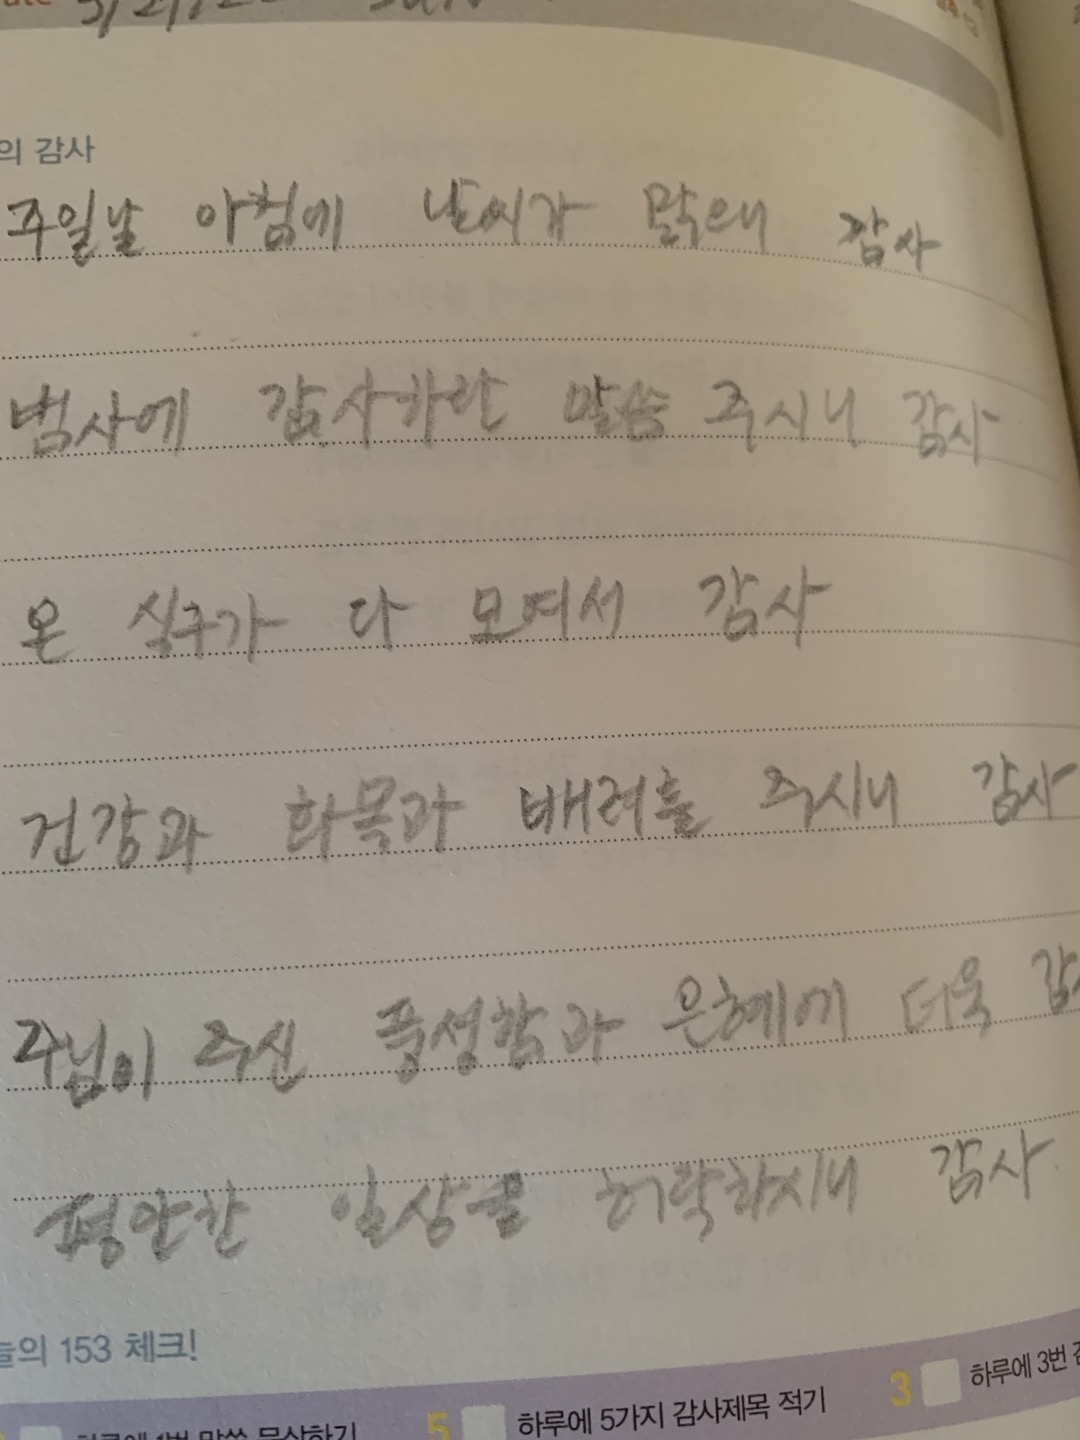 의 감사
주일날 아침에 날씨가 맑으니 감사
범사에 감사하란 말씀 주시니 감사
온 식구가 다 모여서 감사
건강과 화목과 배려를 주시니 감사
주님이 주신 풍성함과 은혜에 더욱 감사
평안한 일상을 허락하시니 감사
늘의 153 체크!
하루에 1번 말씀 묵상하기
5 하루에 5가지 감사제목 적기
3 하루에 3번 감